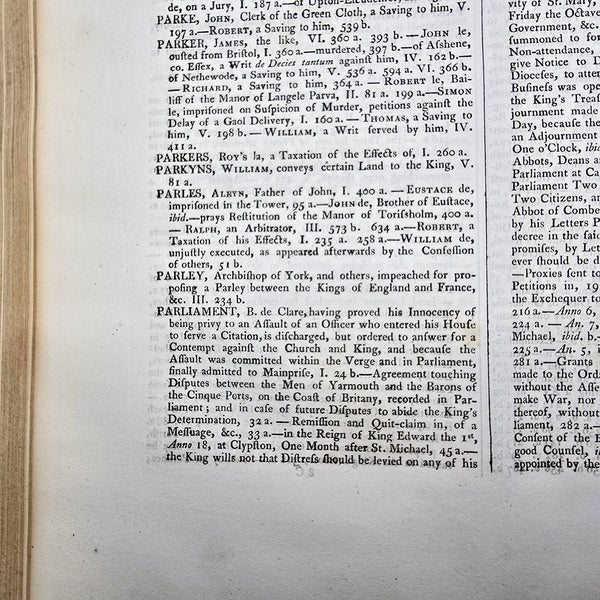 de, on a Jury, I. 187 a.—of
PARKE, JOHN, Clerk of the Green Cloth, a Saving to him, V.
197 a.—ROBERT, a Saving to him, 539 b.
PARKER, JAMES, the like, VI. 360 a. 393 b.—JOHN le,
ousted from Bristol, I. 360 a.—murdered, 397 b.—of Ashene,
co. Essex, a Writ de Decies tantum against him, IV. 162 b.—
of Nethewode, a Saving to him, V. 536 a. 594 a. VI. 366 b.
—RICHARD, a Saving to him, 364 a.—ROBERT le, Bai-
liff of the Manor of Langele Parva, II. 81 a. 199 a.—SIMON
le, imprisoned on Suspicion of Murder, petitions against the
Delay of a Gaol Delivery, I. 160 a.—THOMAS, a Saving to
him, V. 198 b.—WILLIAM, a Writ served by him, IV.
411 a.
PARKERS, Roy's la, a Taxation of the Effects of, I. 260 a.
PARKYNS, WILLIAM, conveys certain Land to the King, V.
81 a.
PARLES, ALEYN, Father of John, I. 400 a.—EUSTACE de,
imprisoned in the Tower, 95 a.—JOHN de, Brother of Eustace,
ibid.—prays Restitution of the Manor of Torifsholm, 400 a.
—RALPH, an Arbitrator, III. 573 b. 634 a.—ROBERT, a
Taxation of his Effects, I. 235 a. 258 a.—WILLIAM de,
unjustly executed, as appeared afterwards by the Confession
of others, 51 b.
PARLEY, Archbishop of York, and others, impeached for pro-
posing a Parley between the Kings of England and France,
&c. III. 234 b.
PARLIAMENT, B. de Clare, having proved his Innocency of
being privy to an Assault of an Officer who entered his House
to serve a Citation, is discharged, but ordered to answer for a
Contempt against the Church and King, and because the
Assault was committed within the Verge and in Parliament,
finally admitted to Mainprise, I. 24 b.—Agreement touching
Disputes between the Men of Yarmouth and the Barons of
the Cinque Ports, on the Coast of Britany, recorded in Par-
liament; and in case of future Disputes to abide the King's
Determination, 32 a.—Remission and Quit-claim in, of a
Messuage, &c., 33 a.—in the Reign of King Edward the 1st,
Anno 18, at Clypston, One Month after St. Michael, 45 a.—
the King wills not that Distress should be levied on any of his
vity of St. Mary,
Friday the Octave
Government, &c.
summoned to for
Non-attendance,
give Notice to D
Diocefes, to atte
Business was ope
the King's Treas
journment made
Day, because the
an Adjournment
One o'Clock, ibid
Abbots, Deans an
Parliament at Ca
Parliament Two
Two Citizens, an
Abbot of Combe
by his Letters P
decree in the said
promises, by Let
ever should be d
—Proxies sent to
Petitions in, 19
the Exchequer to
216 a.—Anno 6,
224 a.—An. 7,
Michael, ibid. b.—
225 a.—An. 5,
281 a.—Grants
made to the Ord
without the Asse
make War, nor
thereof, without
liament, 282 a.—
Consent of the E
good Counsel, ib
appointed by the